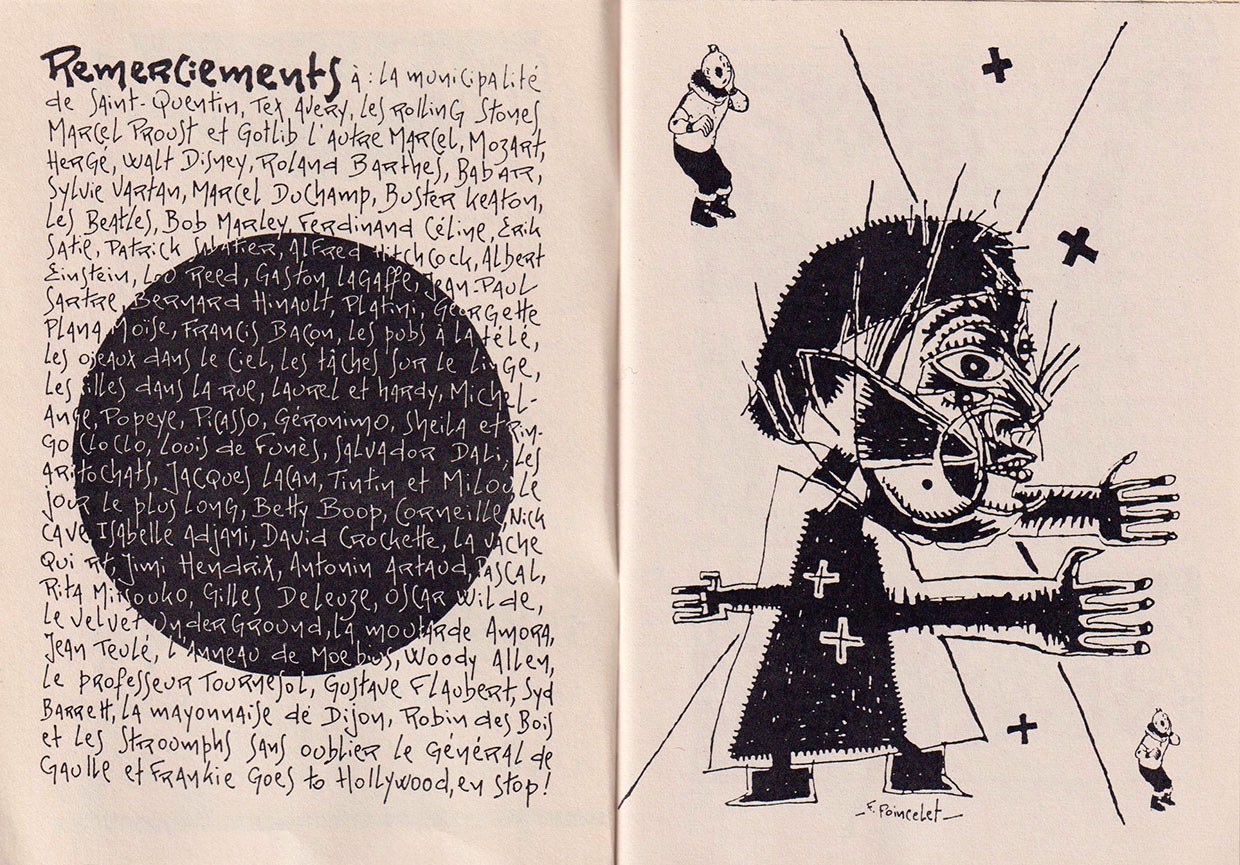 Remerciements à : la municipalité
de Saint-Quentin, Tex Avery, Les Rolling Stones
Marcel Proust et Gotlib l'autre Marcel, Mozart,
Hergé, Walt Disney, Roland Barthes, Babar,
Sylvie Vartan, Marcel Duchamp, Buster Keaton,
Les Beatles, Bob Marley, Ferdinand Céline, Erik
Satie, Patrick Sabatier, Alfred Hitchcock, Albert
Einstein, Lou Reed, Gaston Lagaffe, Jean-Paul
Sartre, Bernard Hinault, Platini, Georgette
Plana Moïse, Francis Bacon, les pubs à la télé,
les oiseaux dans le ciel, les tâches sur le linge,
Les filles dans la rue, Laurel et Hardy, Michel-
Ange, Popeye, Picasso, Géronimo, Sheila et Rin-
go Cloclo, Louis de Funès, Salvador Dali, Les
Aristochats, Jacques Lacan, Tintin et Milou, Le
jour le plus long, Betty Boop, Corneille, Nick
Cave Isabelle Adjani, David Crockette, La vache
qui rit, Jimi Hendrix, Antonin Artaud, Pascal,
Rita Mitsouko, Gilles Deleuze, Oscar Wilde,
Le Velvet Under Ground, la moutarde Amora,
Jean Teulé, l'anneau de Moebius, Woody Allen,
Le professeur Tournesol, Gustave Flaubert, Syd
Barrett, la mayonnaise de Dijon, Robin des Bois
et les Stroumphs sans oublier le général de
Gaulle et Frankie Goes to Hollywood, en stop!
F. Poincelet